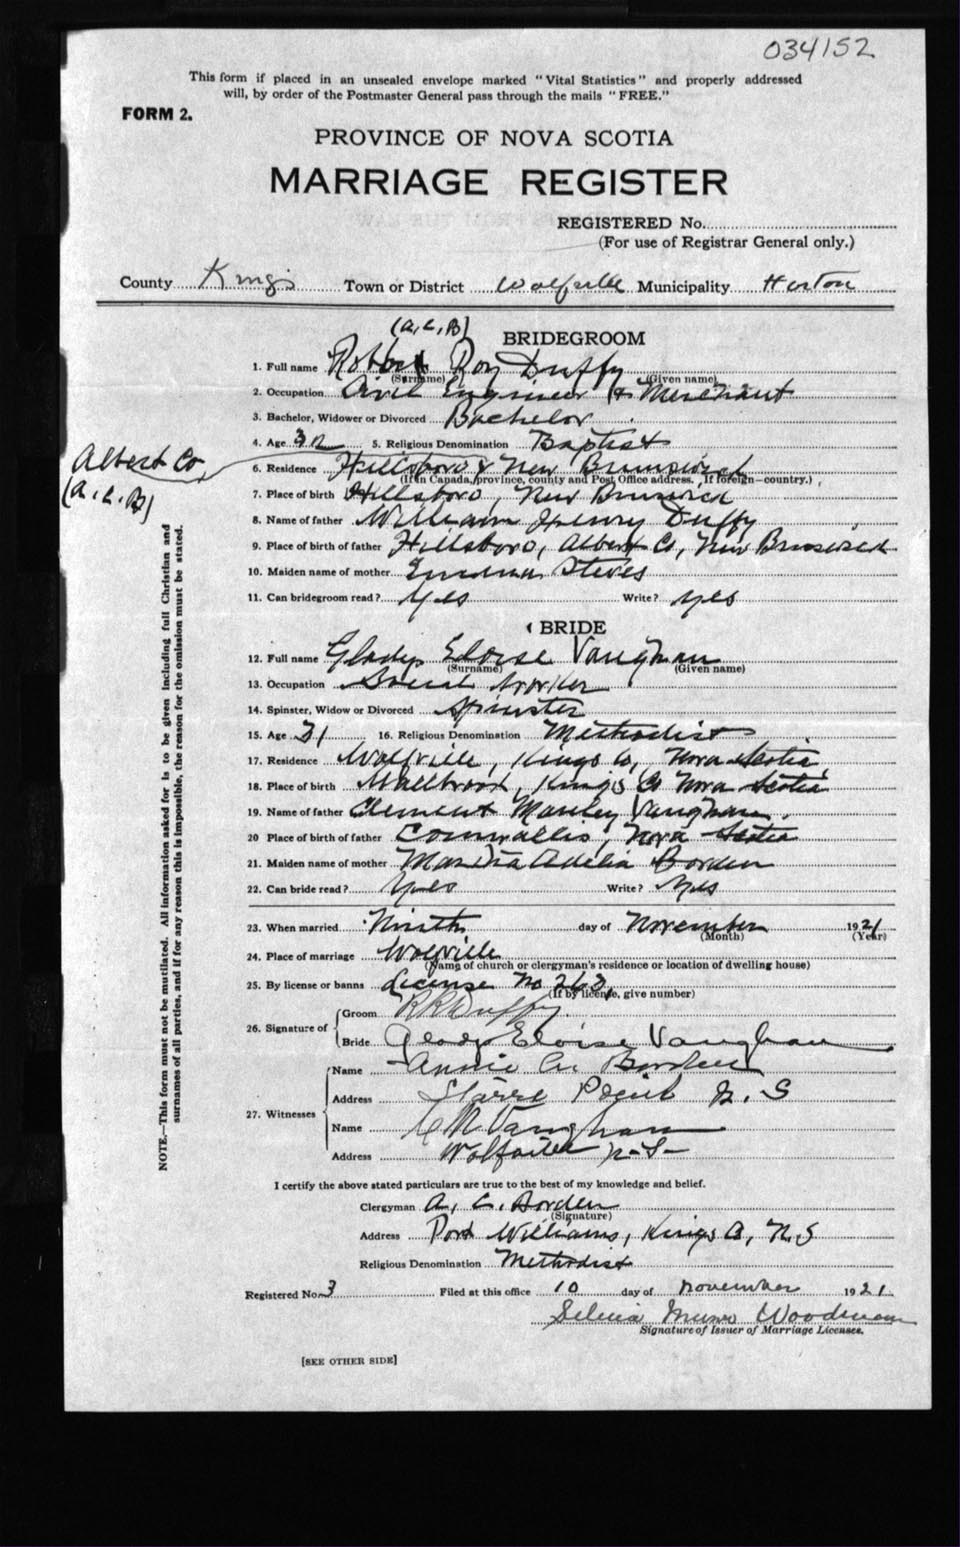 034152
This form if placed in an unsealed envelope marked "Vital Statistics" and properly addressed
will, by order of the Postmaster General pass through the mails "FREE."
FORM 2.
PROVINCE OF NOVA SCOTIA
MARRIAGE REGISTER
REGISTERED No.
(For use of Registrar General only.)
County Kings Town or District Wolfville Municipality Horton
(A.C.B)
BRIDEGROOM
1. Full name Robert Roy Duffy
(Surname) (Given name)
2. Occupation Civil Engineer & Merchant
3. Bachelor, Widower or Divorced Bachelor
4. Age 32 5. Religious Denomination Baptist
Albert Co,
(A.C.B)
6. Residence Hillsboro New Brunswick
(If in Canada, province, county and Post Office address. If foreign—country.)
7. Place of birth Hillsboro, New Brunswick
8. Name of father William Henry Duffy
9. Place of birth of father Hillsboro, Albert Co, New Brunswick
10. Maiden name of mother Steves
11. Can bridegroom read? Yes Write? Yes
BRIDE
12. Full name Gladys Eloise Vaughan
(Surname) (Given name)
13. Occupation Social Worker
14. Spinster, Widow or Divorced Spinster
15. Age 31 16. Religious Denomination Methodist
17. Residence Wolfville, Kings Co, Nova Scotia
18. Place of birth Kings Co Nova Scotia
19. Name of father Clement Manley Vaughan.
20 Place of birth of father Cornwallis, Nova Scotia
21. Maiden name of mother Adelia Borden
22. Can bride read? Yes Write? Yes
23. When married Ninth day of November 1921
(Month) (Year)
24. Place of marriage Wolfville
(Name of church or clergyman's residence or location of dwelling house)
25. By license or banns License No 263
(If by license, give number)
26. Signature of Groom R R Duffy
Bride Gladys Eloise Vaughan
27. Witnesses Name Annie M. Borden
Address Starrs Point N. S
Name C R Vaughan
Address Wolfville N-S-
I certify the above stated particulars are true to the best of my knowledge and belief.
Clergyman A. C. Borden
(Signature)
Address Port Williams, Kings Co, N.S
Religious Denomination Methodist
Registered No. 3 Filed at this office 10 day of November 1921.
Selina Munro Woodman
Signature of Issuer of Marriage Licenses.
[SEE OTHER SIDE]
NOTE.—This form must not be mutilated. All information asked for is to be given including full Christian and
surnames of all parties, and if for any reason this is impossible, the reason for the omission must be stated.